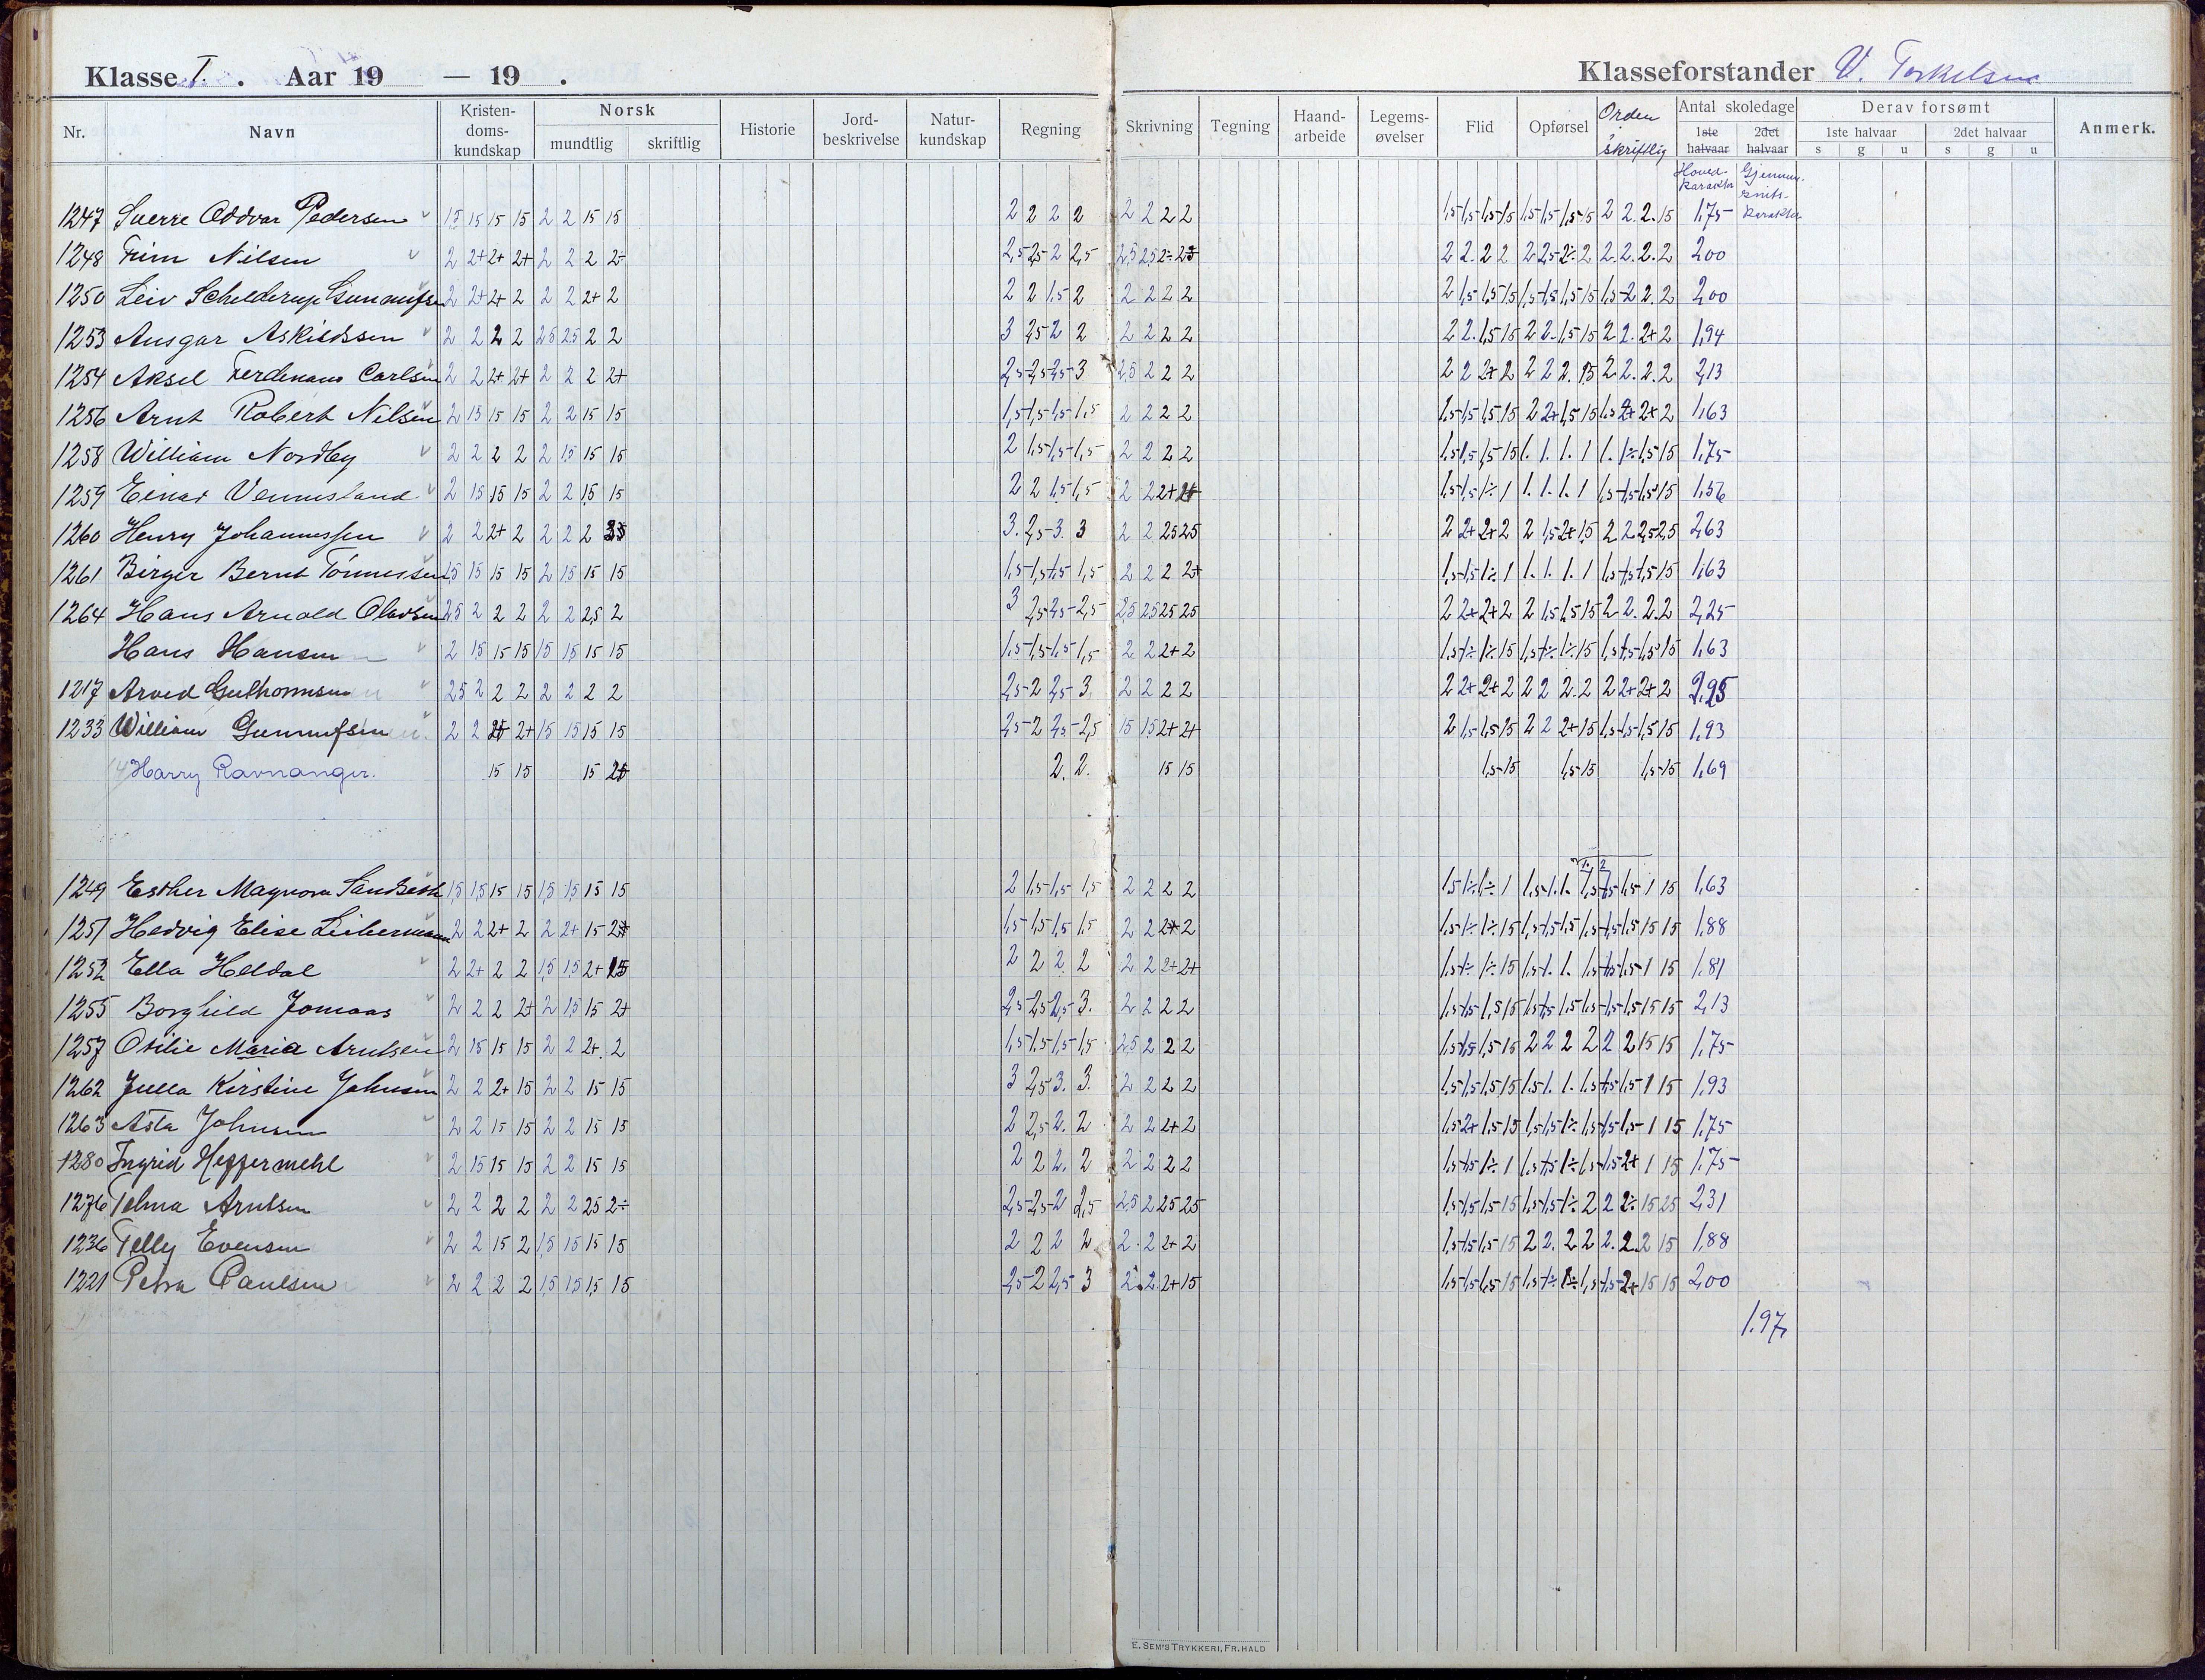 Klasse I. Aar 19 — 19 . Klasseforstander V. Torkelsen
Nr. Navn Kristen-doms-kundskap Norsk mundtlig skriftlig Historie Jord-beskrivelse Natur-kundskap Regning Skrivning Tegning Haand-arbeide Legems-øvelser Flid Opførsel Orden skriftlig Antal skoledage 1ste halvaar 2det halvaar Derav forsømt 1ste halvaar 2det halvaar s g u s g u Anmerk.
Hoved-karakter Gjennem-snits-karakter
1247 Sverre Oddvar Pedersen 15 15 15 15 2 2 15 15 2 2 2 2 2 2 2 2 1,5 1,5 1,5 15 1,5 1,5 1,5 15 2 2. 2. 15 1,75
1248 Nilsen 2 2+ 2+ 2+ 2 2 2 2÷ 2,5 2,5 2 2,5 2 2. 2 2 2 2,5 2÷ 2 2. 2. 2. 2 2,00
1250 Leiv Schelderup 2 2+ 2+ 2 2 2 2+ 2 2 2 1,5 2 2 2 2 2 2 1,5 1,5 15 1,5 1,5 1,5 15 1,5 2 2. 2 2,00
1253 Ansgar Askildssen 2 2 2 2 25 25 2 2 3 2,5 2 2 2 2 2 2 2 2. 1,5 15 2 2. 1,5 15 2 2. 2+ 2 1,94
1254 Aksel Ferdinand Carlsen 2 2 2+ 2+ 2 2 2 2+ 2,5 2,5 2,5 3 2,5 2 2 2 2 2 2+ 2 2 2 2. 15 2 2. 2. 2 2,13
1256 Arnt Robert Nilsen 2 15 15 15 2 2 15 15 1,5 1,5 1,5 1,5 2 2 2 2 1,5 1,5 1,5 15 2 2+ 1,5 15 1,5 2+ 2+ 2 1,63
1258 William Nordby 2 2 2 2 2 15 15 15 2 1,5 1,5 1,5 2 2 2 2 1,5 1,5 1,5 15 1. 1. 1. 1 1. 1÷ 1,5 15 1,75
1259 Einar Vennesland 2 15 15 15 2 2 15 15 2 2 1,5 1,5 2 2 2+ 2+ 1,5 1,5 1÷ 1 1. 1. 1. 1 1,5 1,5 1,5 15 1,56
1260 Henry Johannessen 2 2 2+ 2 2 2 2 3. 2,5 3. 3 2 2 25 25 2 2+ 2+ 2 2 1,5 2+ 15 2 2 2,5 2,5 2,63
1261 Birger Bernt Tønnessen 1,5 15 15 15 2 15 15 15 1,5 1,5 1,5 1,5 2 2 2 2+ 1,5 1,5 1÷ 1 1. 1. 1. 1 1,5 1,5 1,5 15 1,63
1264 Hans Arnold Olavsen 25 2 2 2 2 2 2,5 2 3 2,5 2,5 2,5 2,5 25 25 25 2 2+ 2+ 2 2 1,5 1,5 15 2 2. 2. 2 2,25
Hans Hansen 2 15 15 15 15 15 15 15 1,5 1,5 1,5 1,5 2 2 2+ 2 1,5 1÷ 1÷ 15 1,5 1÷ 1÷ 15 1,5 1,5 1,5 15 1,63
1217 Arved Guthormsen 25 2 2 2 2 2 2 2 2,5 2 2,5 3 2 2 2 2 2 2+ 2+ 2 2 2 2. 2 2 2+ 2+ 2
1233 William Gunnufsen 2 2 2+ 15 15 15 15 2,5 2 2,5 2,5 15 15 2+ 2+ 2 1,5 1,5 15 2 2 2+ 15 1,5 1,5 1,5 15 1,93
Harry Ravnanger. 15 15 15 2+ 2. 2. 15 15 1,5 15 1,5 15 1,5 15 1,69
1. 2
1249 Esther Magnora 15 15 15 15 15 15 15 15 2 1,5 1,5 1,5 2 2 2 2 1,5 1÷ 1÷ 1 1,63
1251 Hedvig Elise Liebermann 2 2 2+ 2 2 2+ 15 2+ 1,5 1,5 1,5 1,5 2 2 2+ 2 1,5 1÷ 1÷ 15 1,88
1252 Ella Heldal 2 2+ 2 2 1,5 1,5 2+ 15 2 2 2 2 2 2 2+ 2+ 1,5 1÷ 1÷ 15 1,81
1255 Borghild Jomaas 2 2 2 2+ 2 15 15 2+ 2,5 2,5 2,5 3. 2 2 2 2 1,5 1,5 1,5 15 2,13
1257 Otilie Maria Arntsen 2 15 15 15 2 2 2+ 2 1,5 1,5 1,5 1,5 2,5 2 2 2 1,5 1,5 1,5 15 2 2 2 2 2 2 15 15 1,75
1262 Julla Kirstine Johnsen 2 2 2+ 15 2 2 15 15 3 2,5 3. 3. 2 2 2 2 1,5 1,5 1,5 15 1,93
1263 Asta Johnsen 2 2 15 15 2 2 15 15 2 2,5 2. 2 2 2 2+ 2 1,5 2+ 1,5 15 1,75
1280 Ingrid Heffermehl 2 15 15 15 2 2 15 15 2 2 2. 2 2 2 2 2 1,5 1,5 1÷ 1 1,75
1276 Telma Arntsen 2 2 2 2 2 2 25 2÷ 2,5 2,5 2 2,5 2,5 2 25 25 1,5 1,5 1,5 15 1,5 1,5 1÷ 2 2 2÷ 15 25 2,31
1236 Telly Evensen 2 2 15 2 1,5 15 15 15 2 2 2 2 2 2 2+ 2 1,5 1,5 1,5 15 2 2. 2 2 2. 2. 2 15 1,88
1221 Petra Paulsen 2 2 2 2 15 15 15 15 2,5 2 2,5 3 2 2 2+ 15 1,5 1,5 1,5 15 2,00
1.97
E. SEM'S TRYKKERI, FR.HALD